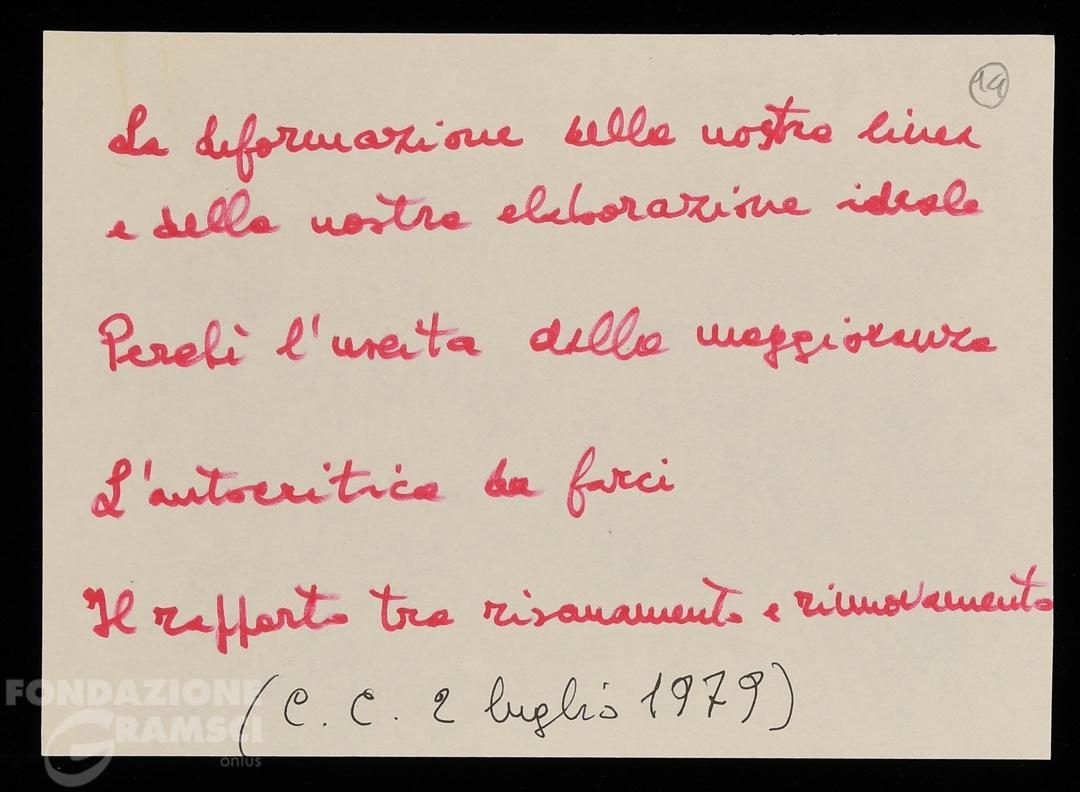 19
La deformazione della nostra linea
e della nostra elaborazione ideale
Perchè l'uscita dalla maggioranza
L'autocritica da farci
Il rapporto tra risanamento e rinnovamento
(C. C. 2 luglio 1979)
FONDAZIONE
GRAMSCI
onlus